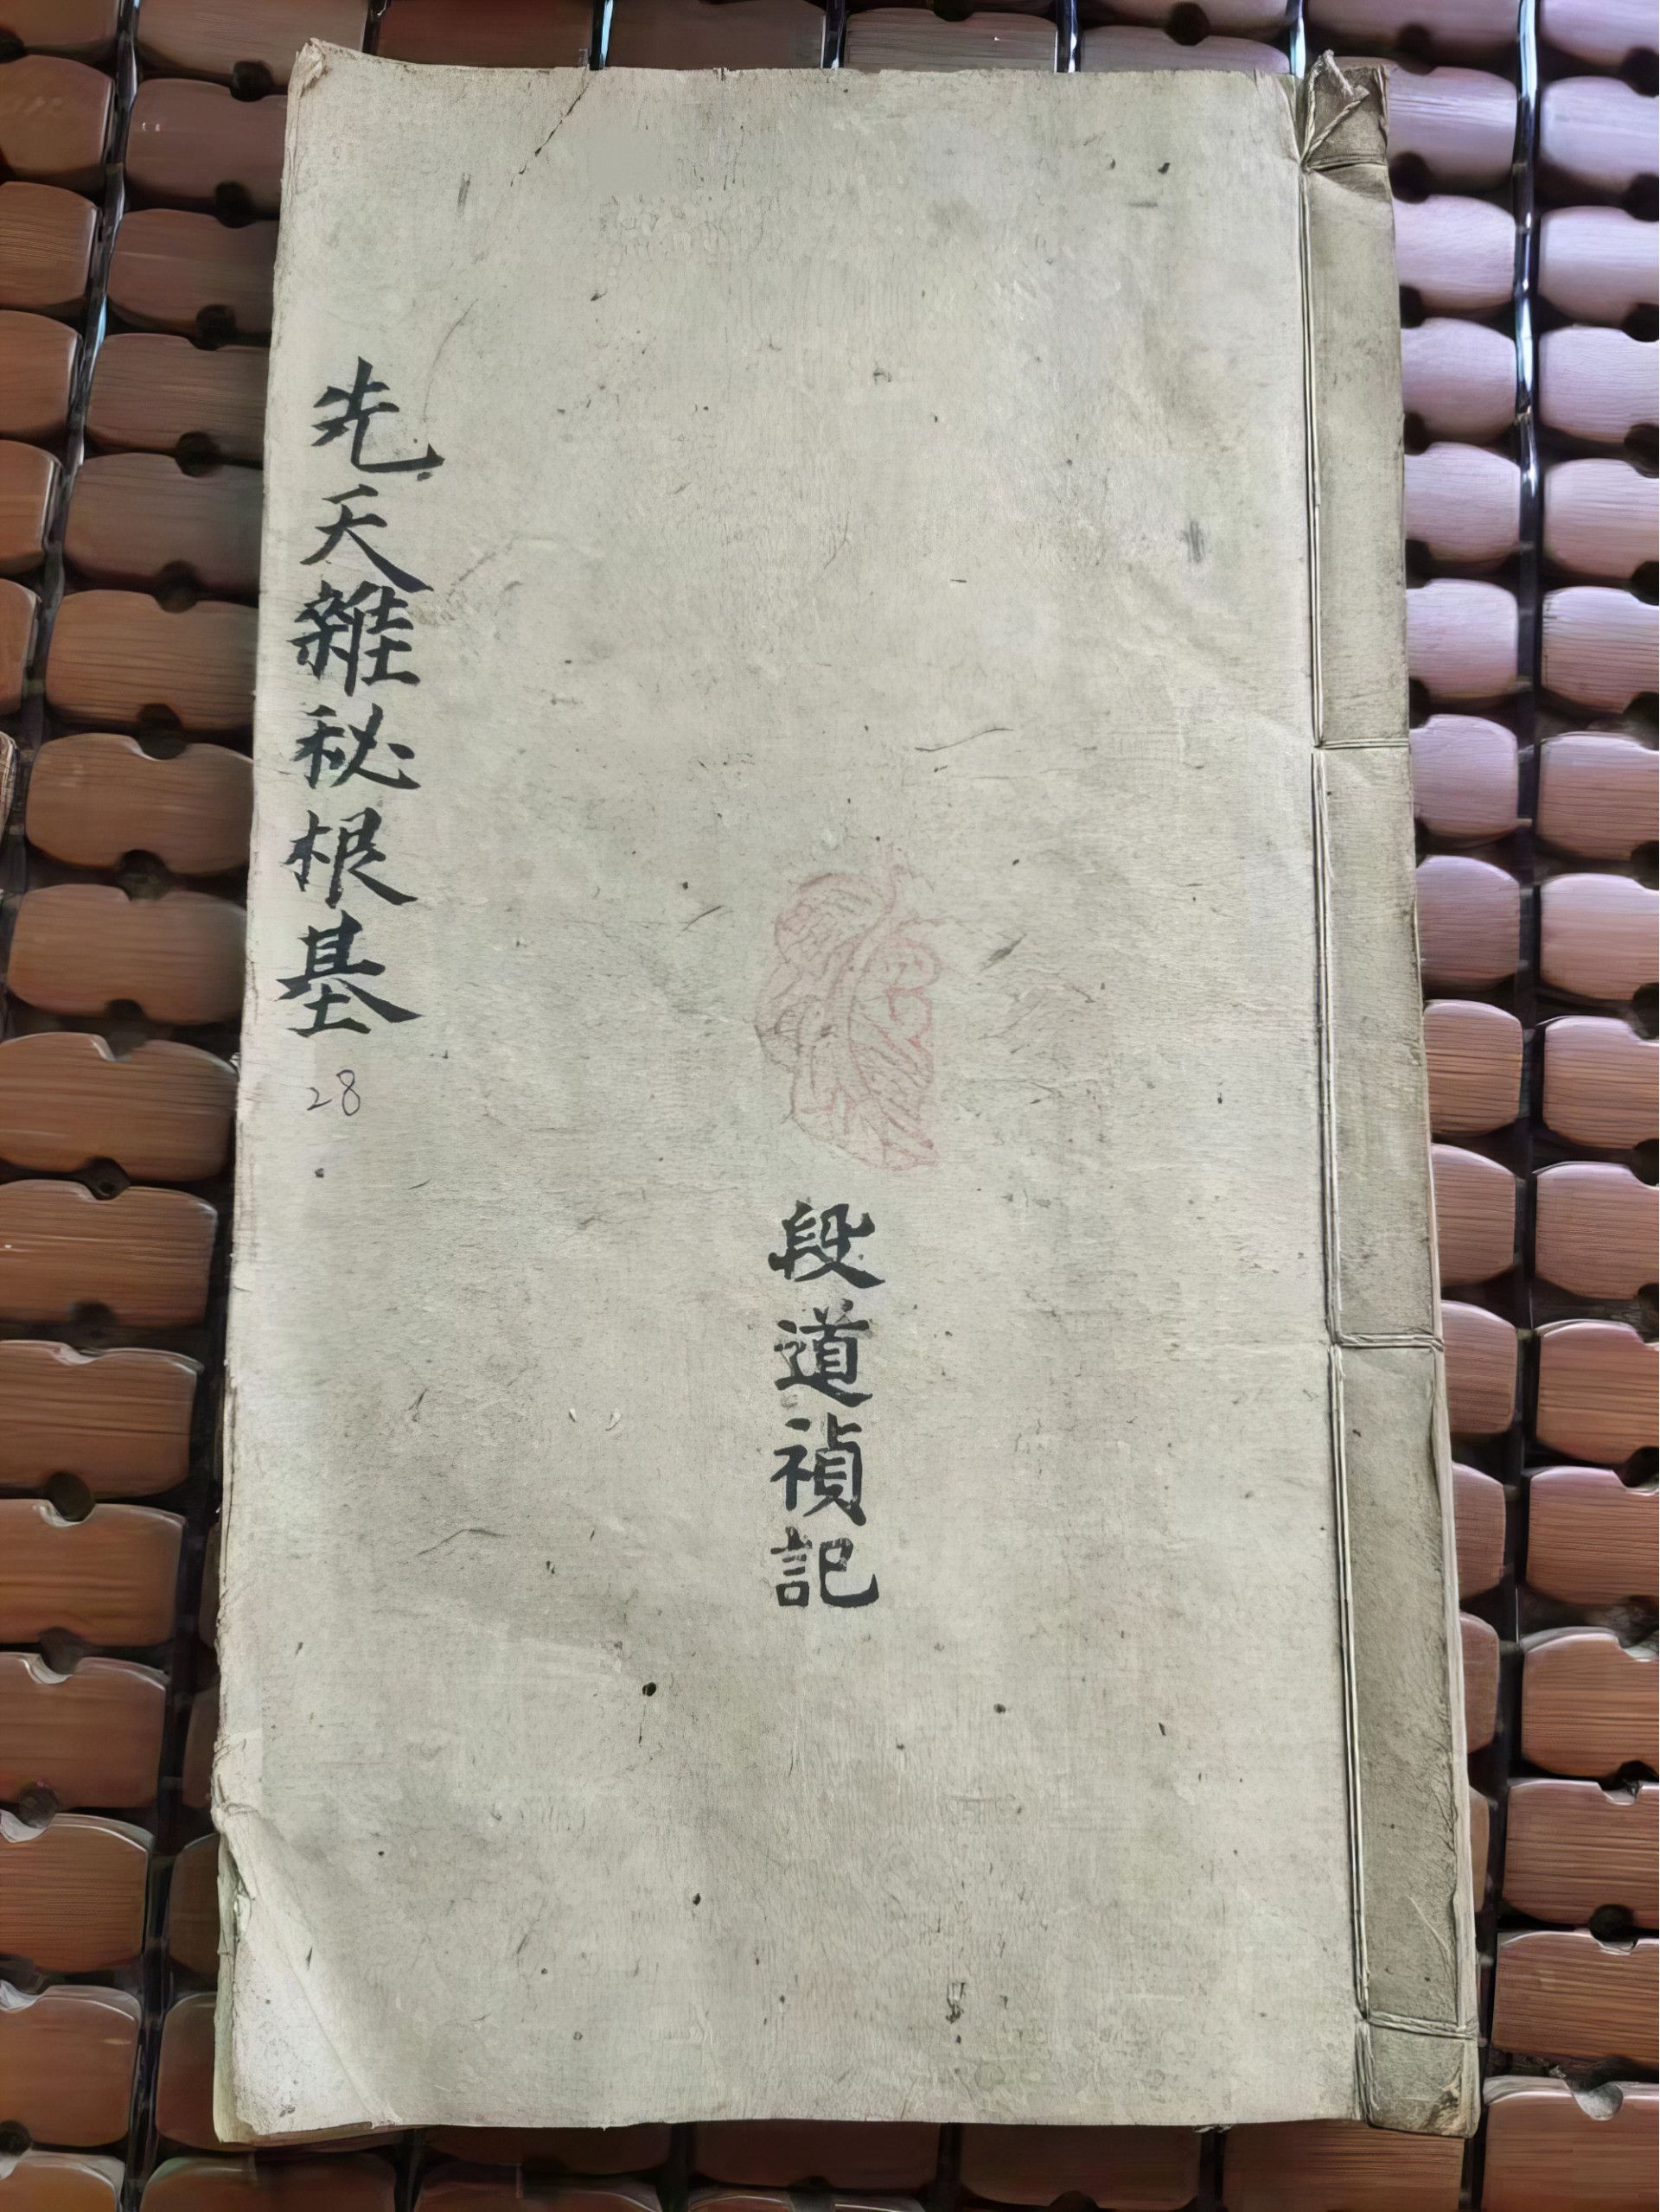 先天雜秘根基
28
段道禎記